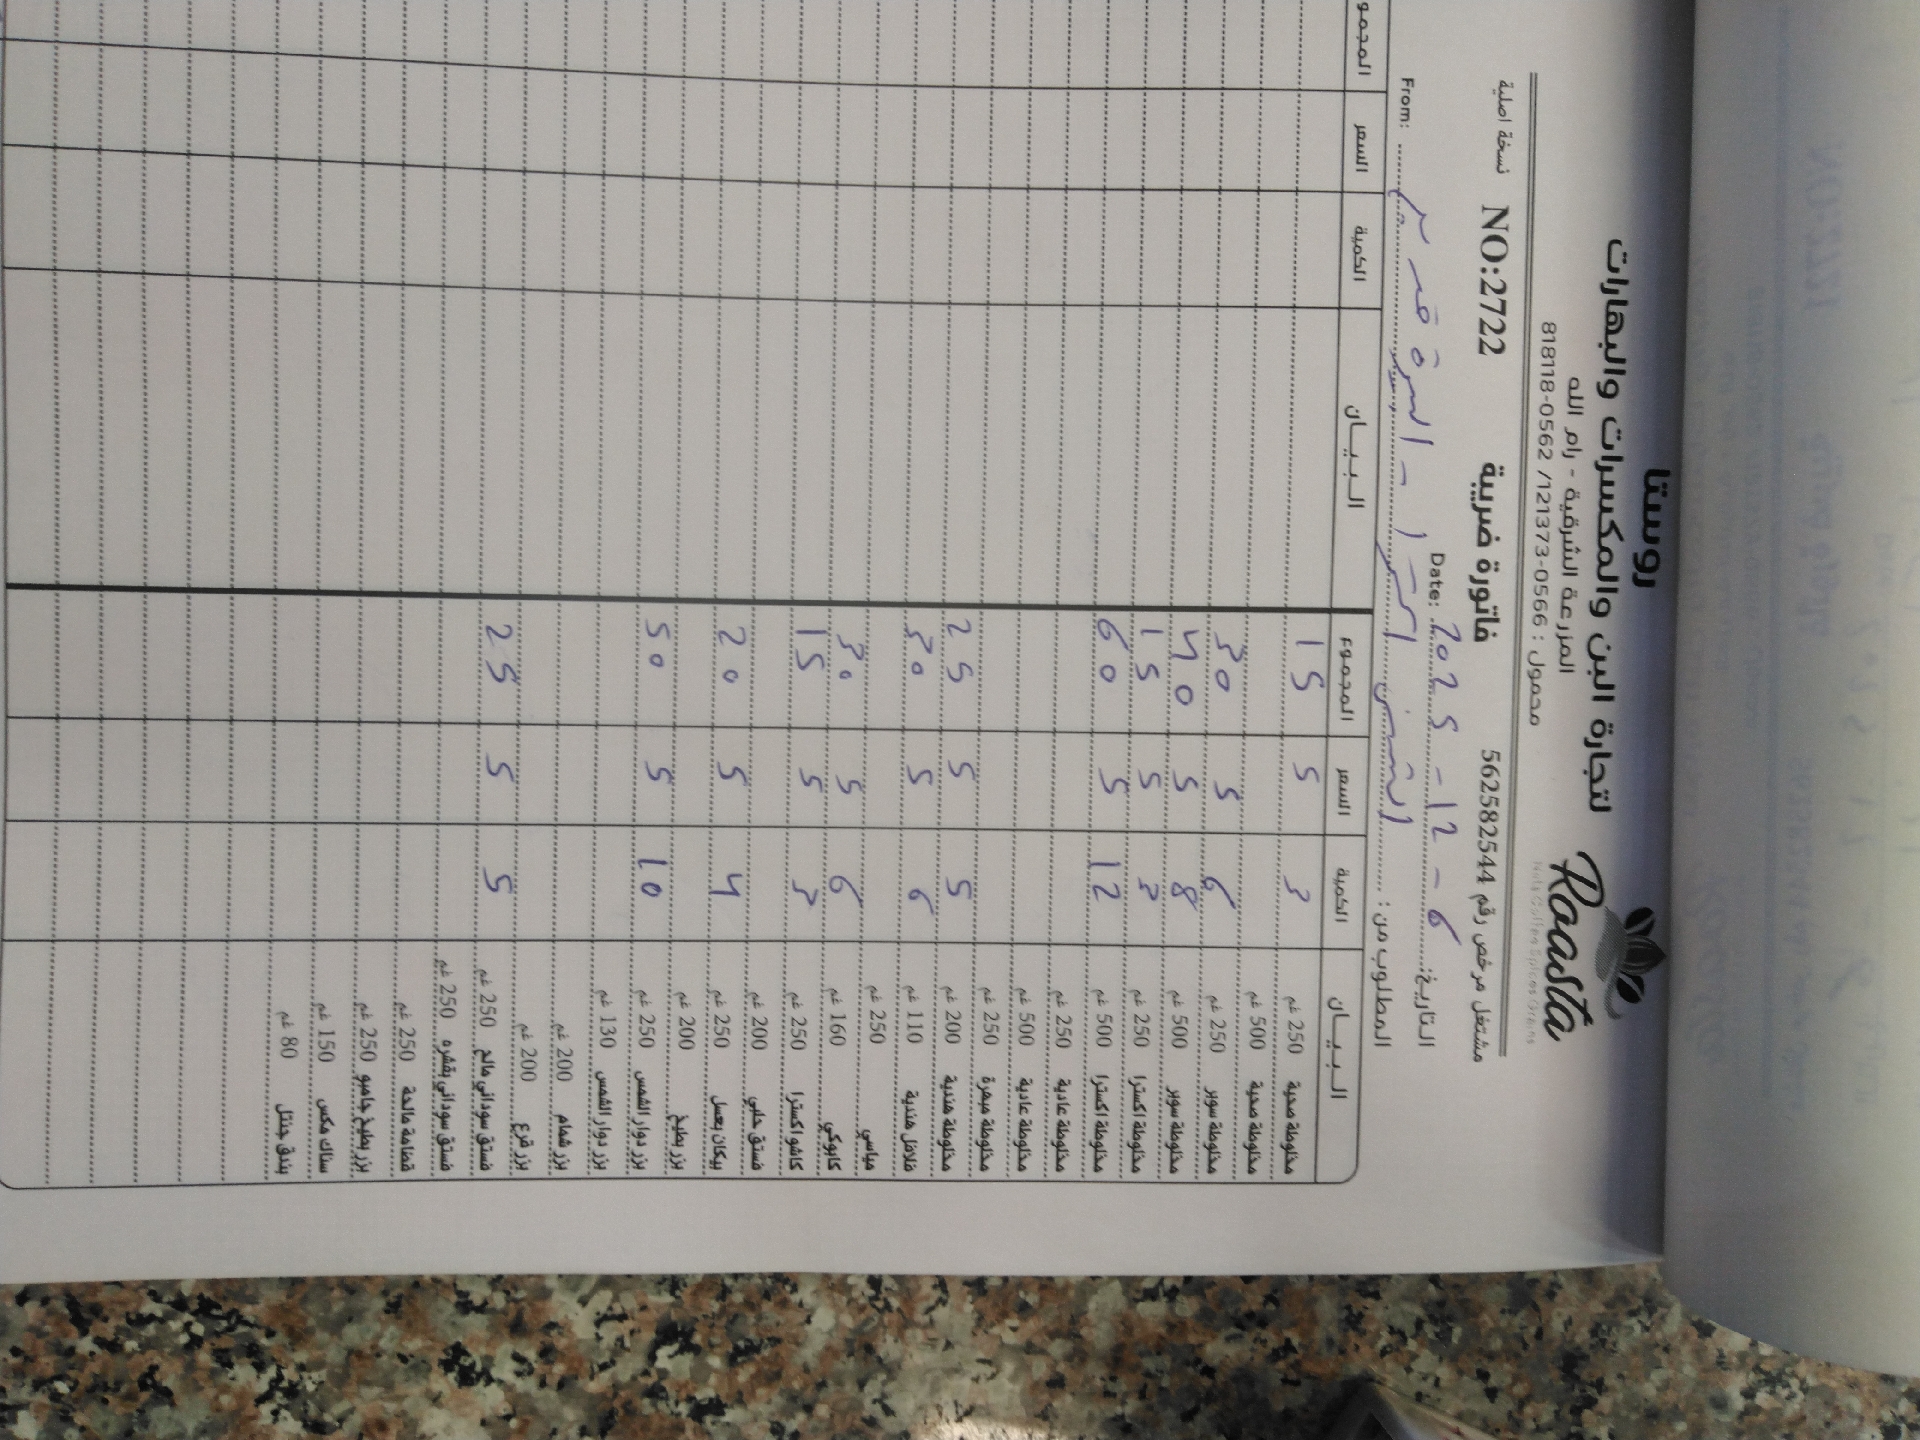 روستا
لتجارة البن والمكسرات والبهارات
المزرعة الشرقية - رام الله
محمول : 0566-121373/ 0562-818118
Roasta
Nuts Coffee Spices Grains
مشتغل مرخص رقم 562582544 فاتورة ضريبة NO:2722 نسخة اصلية
التاريخ: 6 - 12 - 2025 Date:
المطلوب من : From:
البيـــان الكمية السعر المجموع البيـــان الكمية السعر المجمو
مخلوطة صحية 250 غم 3 5 15
مخلوطة صحية 500 غم
مخلوطة سوبر 250 غم 6 5 30
مخلوطة سوبر 500 غم 8 5 40
مخلوطة اكسترا 250 غم 3 5 15
مخلوطة اكسترا 500 غم 12 5 60
مخلوطة عادية 250 غم
مخلوطة عادية 500 غم
مخلوطة مبهرة 250 غم
مخلوطة هندية 200 غم 5 5 25
فلافل هندية 110 غم 6 5 30
مياسي 250 غم
كابوكي 160 غم 6 5 30
كاشو اكسترا 250 غم 3 5 15
فستق حلبي 200 غم
بيكان بعسل 250 غم 4 5 20
بزر بطيخ 200 غم
بزر دوار الشمس 250 غم 10 5 50
بزر دوار الشمس 130 غم
بزر شمام 200 غم
بزر قرع 200 غم
فستق سوداني مالح 250 غم 5 5 25
فستق سوداني بقشره 250 غم
قضامة مالحة 250 غم
بزر بطيخ جامبو 250 غم
سناك مكس 150 غم
بندق جنتل 80 غم